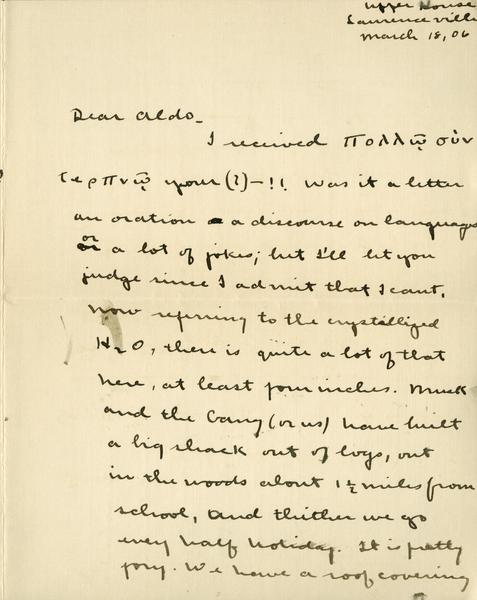 Upper House
Lawrenceville
March 18, 06
Dear Aldo-
I received πολλῷ σὺν
τερπνῷ your (?)-!! Was it a letter
an oration a discourse on languages
or a lot of jokes; but I'll let you
judge since I admit that I cant.
Now referring to the crystallized
H2O, there is quite a lot of that
here, at least four inches. Muck
and the Gang (or us) have built
a big shack out of logs, out
in the woods about 1½ miles from
school, and thither we go
every half holiday. It is pretty
We have a roof covering